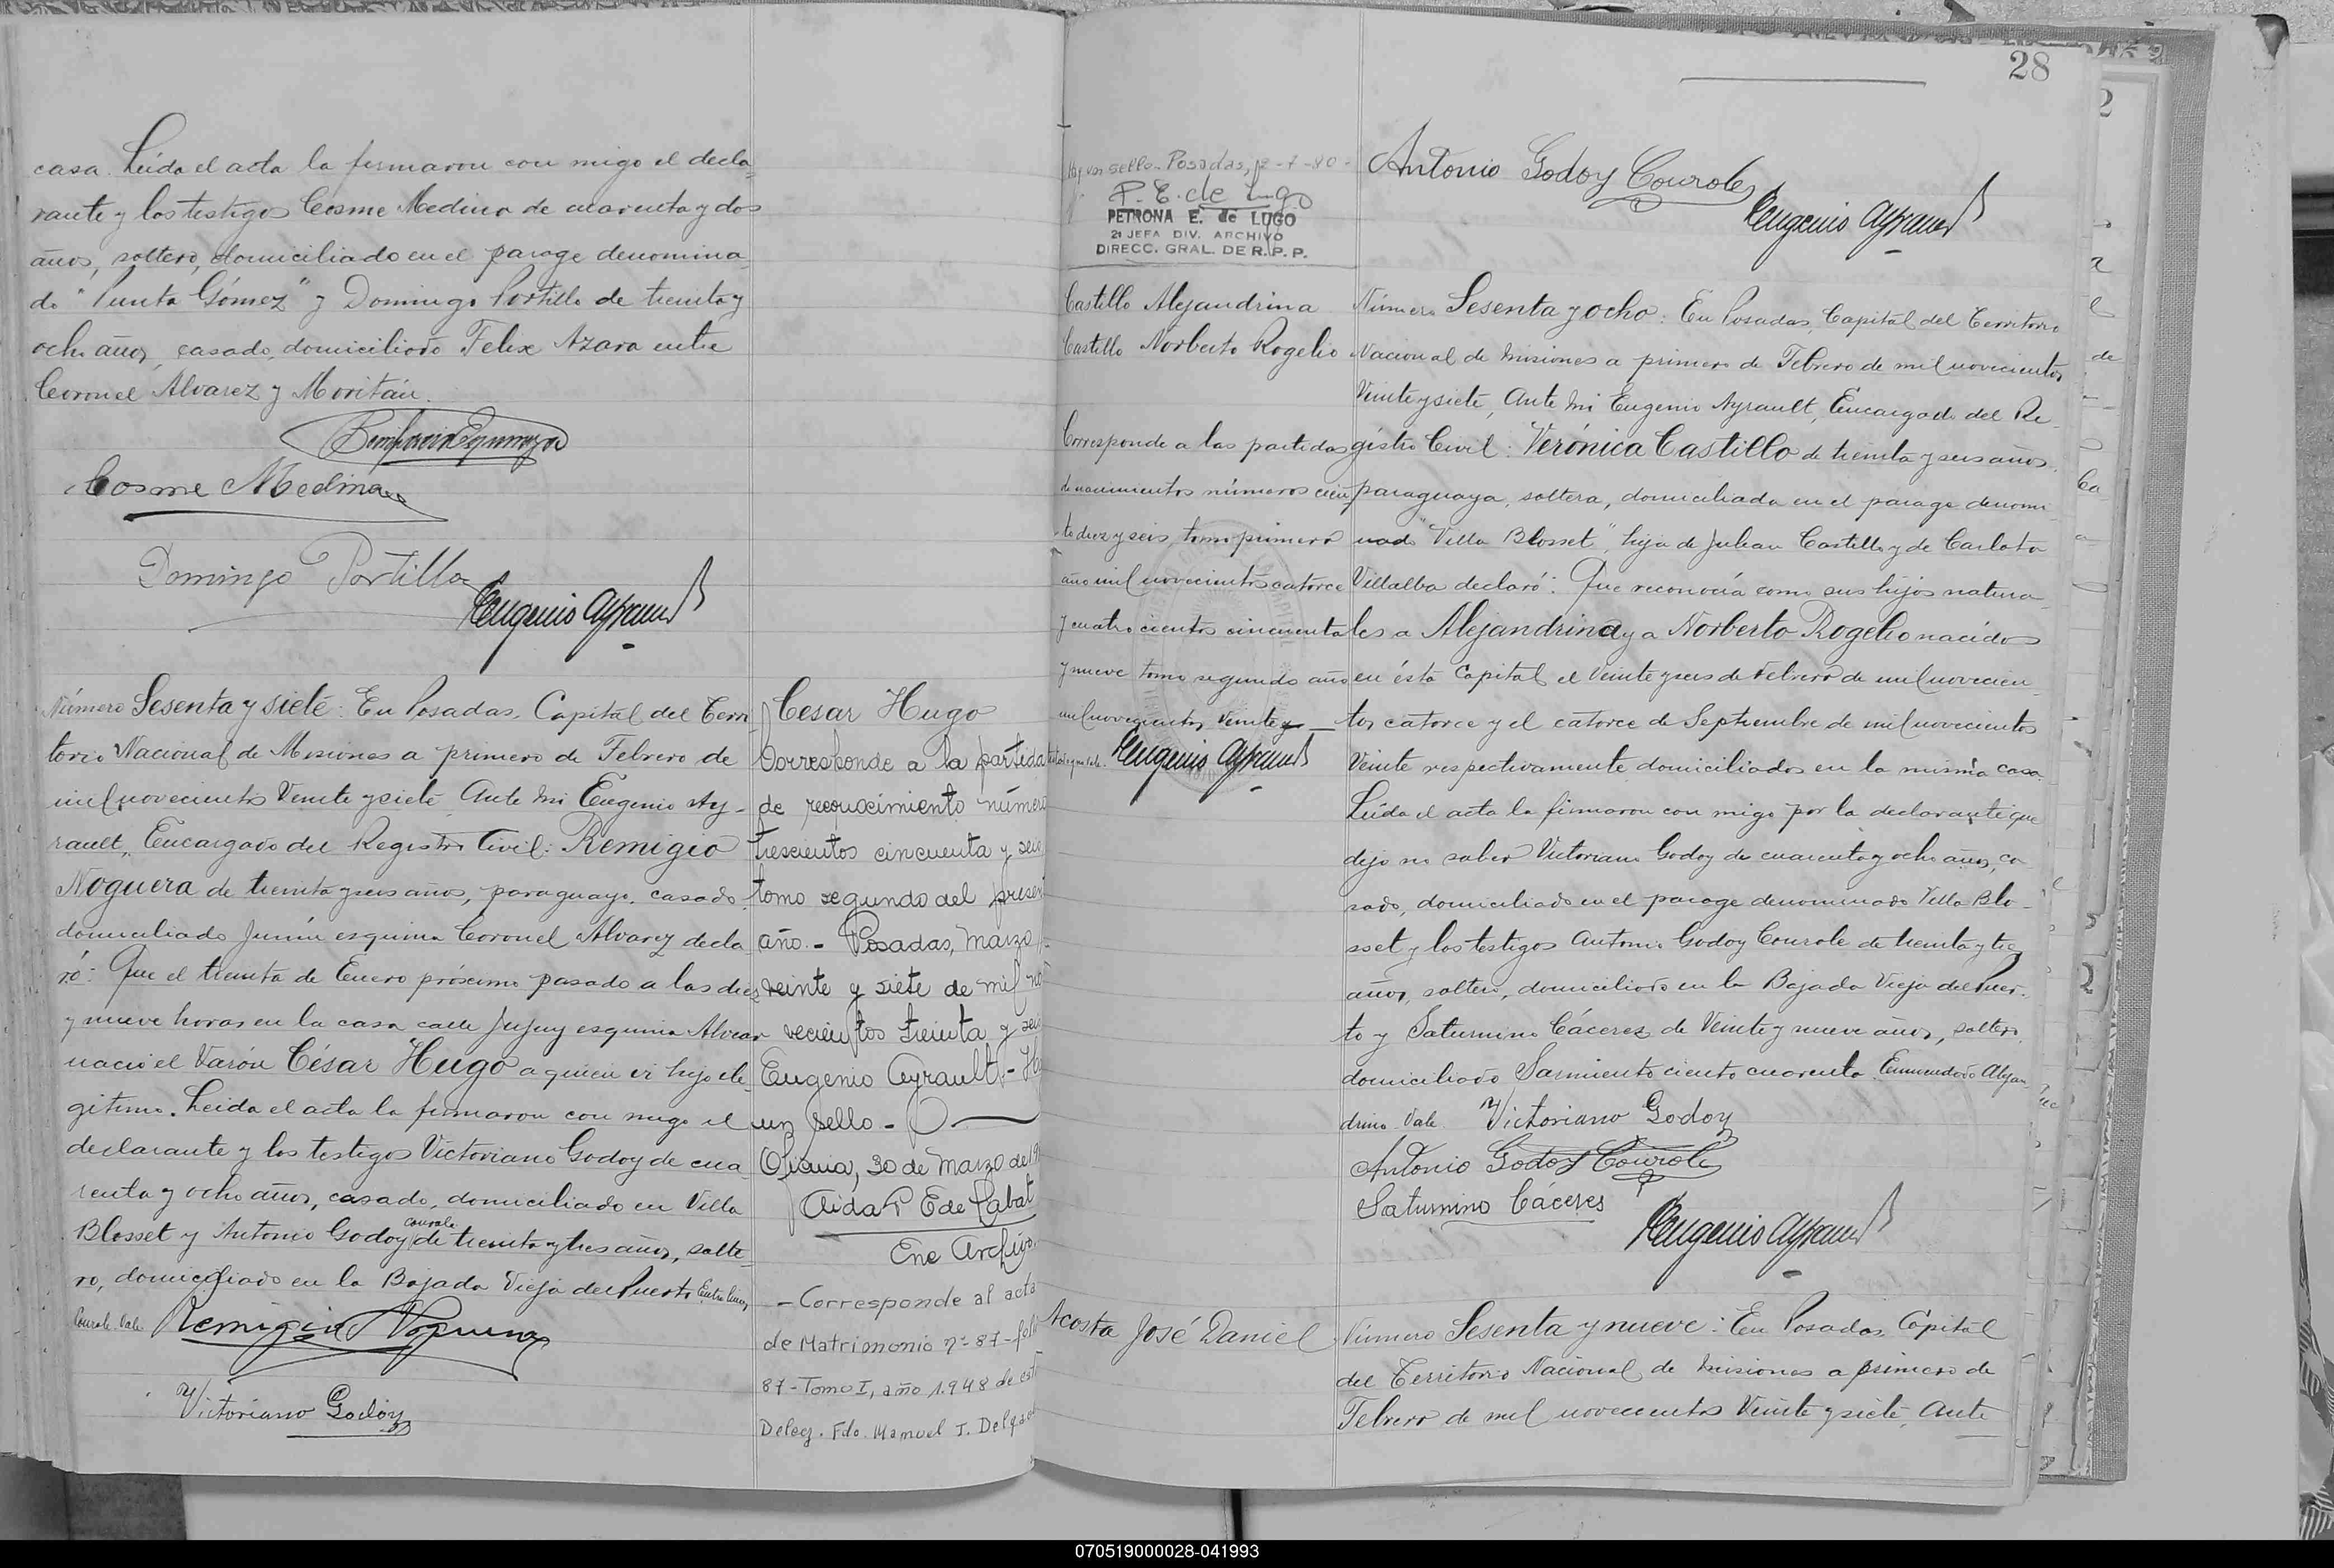 casa. Leida el acta la firmaron con migo el decla
rante y los testigos Cosme Medina de cuarenta y dos
años, soltero, domiciliado en el parage denomina
do "Punta Gómez" y Domingo Portillo de treinta y
ocho años, casado, domiciliado Felix Azara entre
Coronel Alvarez y Moritán.
Cosme Medina
Domingo Portillo
Eugenio Ayrault
Número Sesenta y siete: En Posadas, Capital del Terri
torio Nacional de Misiones a primero de Febrero de
mil novecientos Veinte y siete, Ante mi Eugenio Ay-
rault, Encargado del Registro Civil: Remigio
Noguera de treinta y seis años, paraguayo, casado,
domiciliado Junin esquina Coronel Alvarez decla
ró: Que el treinta de Enero próximo pasado a las diez
y nueve horas en la casa calle Jujuy esquina Alvear
nació el Varón César Hugo a quien es hijo le
gitimo. Leida el acta la firmaron con migo el
declarante y los testigos Victoriano Godoy de cua
renta y ocho años, casado, domiciliado en Villa
Blosset y Antonio Godoy Courole de treinta y tres años, solte
ro, domiciliado en la Bajada Vieja del Puerto. Entre lineas
Courole. Vale. Remigio Noguera
Victoriano Godoy
Cesar Hugo
Corresponde a la partida
de reconocimiento número
trescientos cincuenta y seis
tomo segundo del presen
año. - Posadas, Marzo
veinte y siete de mil no
vecientos treinta y seis
Eugenio Ayrault - Hay
un sello -
Oficina, 30 de Marzo de 19
Aida P E de Labat
Enc Archivo
- Corresponde al acta
de Matrimonio nº 87 - folio
87 - Tomo I, año 1.948 de esta
Deleg. Fdo. Manuel J. Delgado
28
Hay un sello - Posadas, 2-7-80-
P. E. de Lugo
PETRONA E. de LUGO
2ª JEFA DIV. ARCHIVO
DIRECC. GRAL. DE R. P. P.
Castillo Alejandrina
Castillo Norberto Rogelio
Corresponde a las partidas
de nacimientos números cien
to diez y seis, tomo primero
año mil novecientos catorce
y cuatro cientos cincuenta
y nueve tomo segundo año
mil novecientos Veinte y
Eugenio Ayrault
Antonio Godoy Courole
Eugenio Ayrault
Número Sesenta y ocho: En Posadas, Capital del Territorio
Nacional de Misiones a primero de Febrero de mil novecientos
Veinte y siete, Ante mi Eugenio Ayrault, Encargado del Re-
gistro Civil: Verónica Castillo de treinta y seis años,
paraguaya, soltera, domiciliada en el parage denomi
nado "Villa Blosset", hija de Julian Castillo y de Carlota
Villalba declaró: Que reconocía como sus hijos natura
les a Alejandrina y a Norberto Rogelio nacidos
en ésta Capital el Veinte y seis de Febrero de mil novecien
tos catorce y el catorce de Septiembre de mil novecientos
Veinte respectivamente domiciliados en la misma casa.
Leida el acta la firmaron con migo por la declarante que
dijo no saber Victoriano Godoy de cuarenta y ocho años, ca
sado, domiciliado en el parage denominado Villa Blo-
sset y los testigos Antonio Godoy Courole de treinta y tres
años, soltero, domiciliado en la Bajada Vieja del Puer-
to y Saturnino Cáceres de Veinte y nueve años, soltero,
domiciliado Sarmiento ciento cuarenta. Enmendado Alejan
drina. Vale. Victoriano Godoy
Antonio Godoy Courole
Saturnino Cáceres
Eugenio Ayrault
Acosta José Daniel
Número Sesenta y nueve: En Posadas, Capital
del Territorio Nacional de Misiones a primero de
Febrero de mil novecientos Veinte y siete, Ante
070519000028-041993